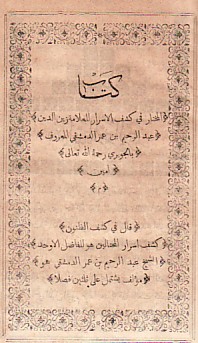 كتاب
﴿المختار في كشف الاسرار للعلامة زين الدين﴾
﴿عبد الرحيم بن عمر الدمشقي المعروف﴾
﴿بالجوبري رحمة الله تعالى﴾
﴿آمين﴾
﴿م﴾
﴿قال في كشف الظنون﴾
﴿كشف اسرار المحتالين هو للفاضل الاوحد﴾
﴿الشيخ عبد الرحيم بن عمر الدمشقي هو﴾
﴿مؤلف يشتمل على ثلاثين فصلا﴾